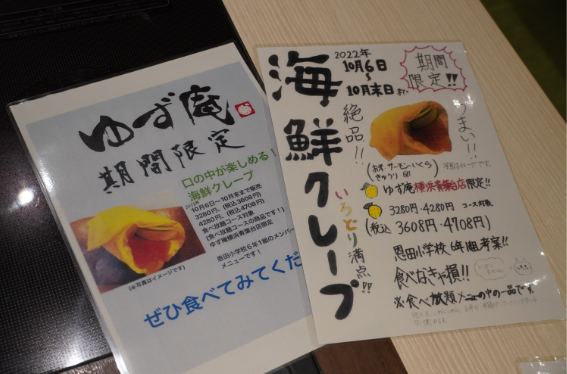 ゆず庵
期間限定
口の中が楽しめる!
海鮮クレープ
10月6日~10月末まで販売
3280円、(税込3608円)
4280円、(税込4708円)
(食べ放題コース対象
(食べ放題コースの商品です!)
ゆず庵横浜青葉台店限定
恩田小学校6年1組のメンバー
メニューです!
(※写真はイメージです)
ぜひ食べてみてくだ
海鮮クレープ
2022年
10月6日
~
10月末日まで
期間
限定!!
絶品!!
うまい!!
いろどり満点!!
きゅうり
ゆず庵横浜青葉台店限定!!
3280円・4280円 コース対象
(税込 3608円・4708円)
恩田小学校 6年1組考案!!
食べなきゃ損!!
※食べ放題メニューの中の一品です